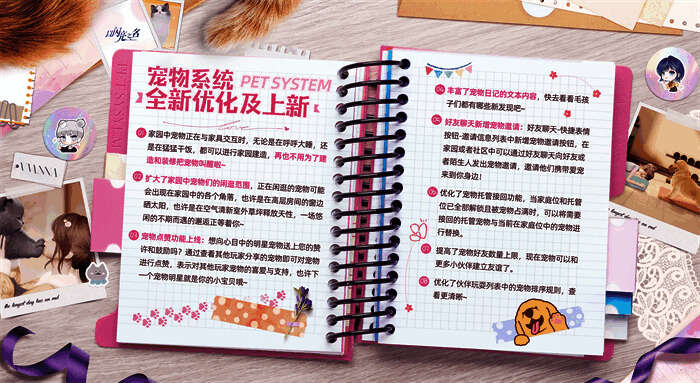 以闪光之名
宠物系统
PET SYSTEM
全新优化及上新
01 家园中宠物正在与家具交互时，无论是在呼呼大睡，还
是在猛猛干饭，都可以进行家园建造，再也不用为了建
造和装修把宠物叫醒啦~
02 扩大了家园中宠物们的闲逛范围，正在闲逛的宠物可能
会出现在家园中的各个角落，也许是在高层房间的窗边
晒太阳，也许是在空气清新室外草坪释放天性，一场悠
闲的不期而遇的邂逅正等着你~
03 宠物点赞功能上线：想向心目中的明星宠物送上您的赞
许和鼓励吗？通过查看其他玩家分享的宠物即可对宠物
进行点赞，表示对其他玩家宠物的喜爱与支持，也许下
一个宠物明星就是你的小宝贝哦~
04 丰富了宠物日记的文本内容，快去看看毛孩
子们都有哪些新发现吧~
05 好友聊天新增宠物邀请：好友聊天-快捷表情
按钮-邀请信息列表中新增宠物邀请按钮，在
家园或者社区中可以通过好友聊天向好友或
者陌生人发出宠物邀请，邀请他们携带爱宠
来到你身边！
06 优化了宠物托管接回功能，当家庭位和托管
位已全部解锁且被宠物占满时，可以将需要
接回的托管宠物与当前在家庭位中的宠物进
行替换。
07 提高了宠物好友数量上限，现在宠物可以和
更多小伙伴建立友谊了。
08 优化了伙伴玩耍列表中的宠物排序规则，查
看更清晰~